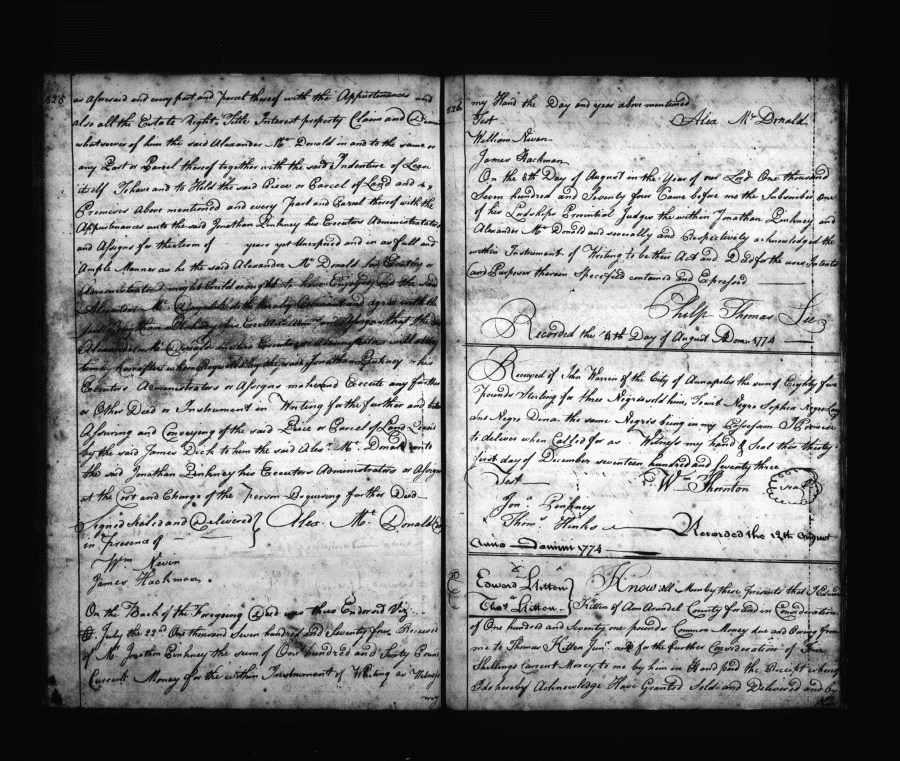 525
as aforesaid and every part and Parcel thereof with the Appurtenances and
also all the Estate Right Title Interest property Claim and
whatsoever of him the said Alexander Mc. Donald in and to the same or
any Part or Parcel thereof together with the said Indenture of Lease
itself To have and to Hold the said Piece or Parcel of Land and
Premises above mentioned and every Part and Parcel thereof with the
Appurtenances unto the said Jonathan Pinkney his Executors Administrators
and Assigns for the term of years yet unexpired and in as full and
Ample Manner as he the said Alexander Mc. Donald his Executors or
Administrators might could or ought to have Enjoyed and the said
Alexander Mc. Donald doth hereby Covenant and agree with the
said Jonathan Pinkney his Executors and Assigns that the
Alexander Mc. Donald his Executors or Administrators will at any
time hereafter when Requested by the said Jonathan Pinkney his
Executors Administrators or Assigns make and Execute any further
or Other Deed or Instrument in Writing for the further and better
Assuring and Conveying of the said Piece or Parcel of Land
by the said James Dick to him the said Alexr. Mc. Donald unto
the said Jonathan Pinkney his Executors Administrators or Assigns
at the Cost and Charge of the Person Requiring further Deed
Signed Sealed and Delivered } Alex Mc. Donald
in Presence of
Wm Nevin
James Hackman.
On the Back of the Foregoing Deed was thus Endorsed Viz.
July the 22d One thousand Seven hundred and Seventy four Received
of Mr. Jonathan Pinkney the sum of One hundred and Sixty
Current Money for the within Instrument of Writing as Witness
my
526
my Hand the Day and year above mentioned
Test Alex Mc Donald.
William Niven
James Hackman
On the 8th Day of August in the Year of our Lord One thousand
Seven hundred and Seventy four Came before me the Subscriber one
of his Lordships Provincial Judges the within Jonathan Pinkney and
Alexander Mc. Donald and severally and Respectively acknowledged the
within Instrument of Writing to be their Act and Deed for the uses Intents
and Purposes therein Specified contained and Expressed
Philp Thomas Lee
Recorded the 8th Day of August Adom: 1774
Received of John Warren of the City of Annapolis the sum of Eighty five
Pounds Sterling for three Negroes sold him, To wit Negro Sophia Negro
and Negro Dina the same Negroes being in my Possession I Promise
to deliver when Called for as Witness my hand & Seal this thirty
first day of December seventeen hundred and seventy three
Test Wm Thornton (Seal)
Jon Pinkney
Thoms Hinks Recorded the 12th August
Anno Domini 1774
Edward Kitten } Know all Men by these Presents that I Edward
Thos Kitten } Kitten of Ann Arundel County for and in Consideration
of One hundred and Seventy one pounds Common Money due and Owing from
me to Thomas Kitten Junr and for the further Consideration of
Shillings Current Money to me by him in Hand paid the Receipt whereof
I do hereby Acknowledge Have Granted Sold and Delivered and by